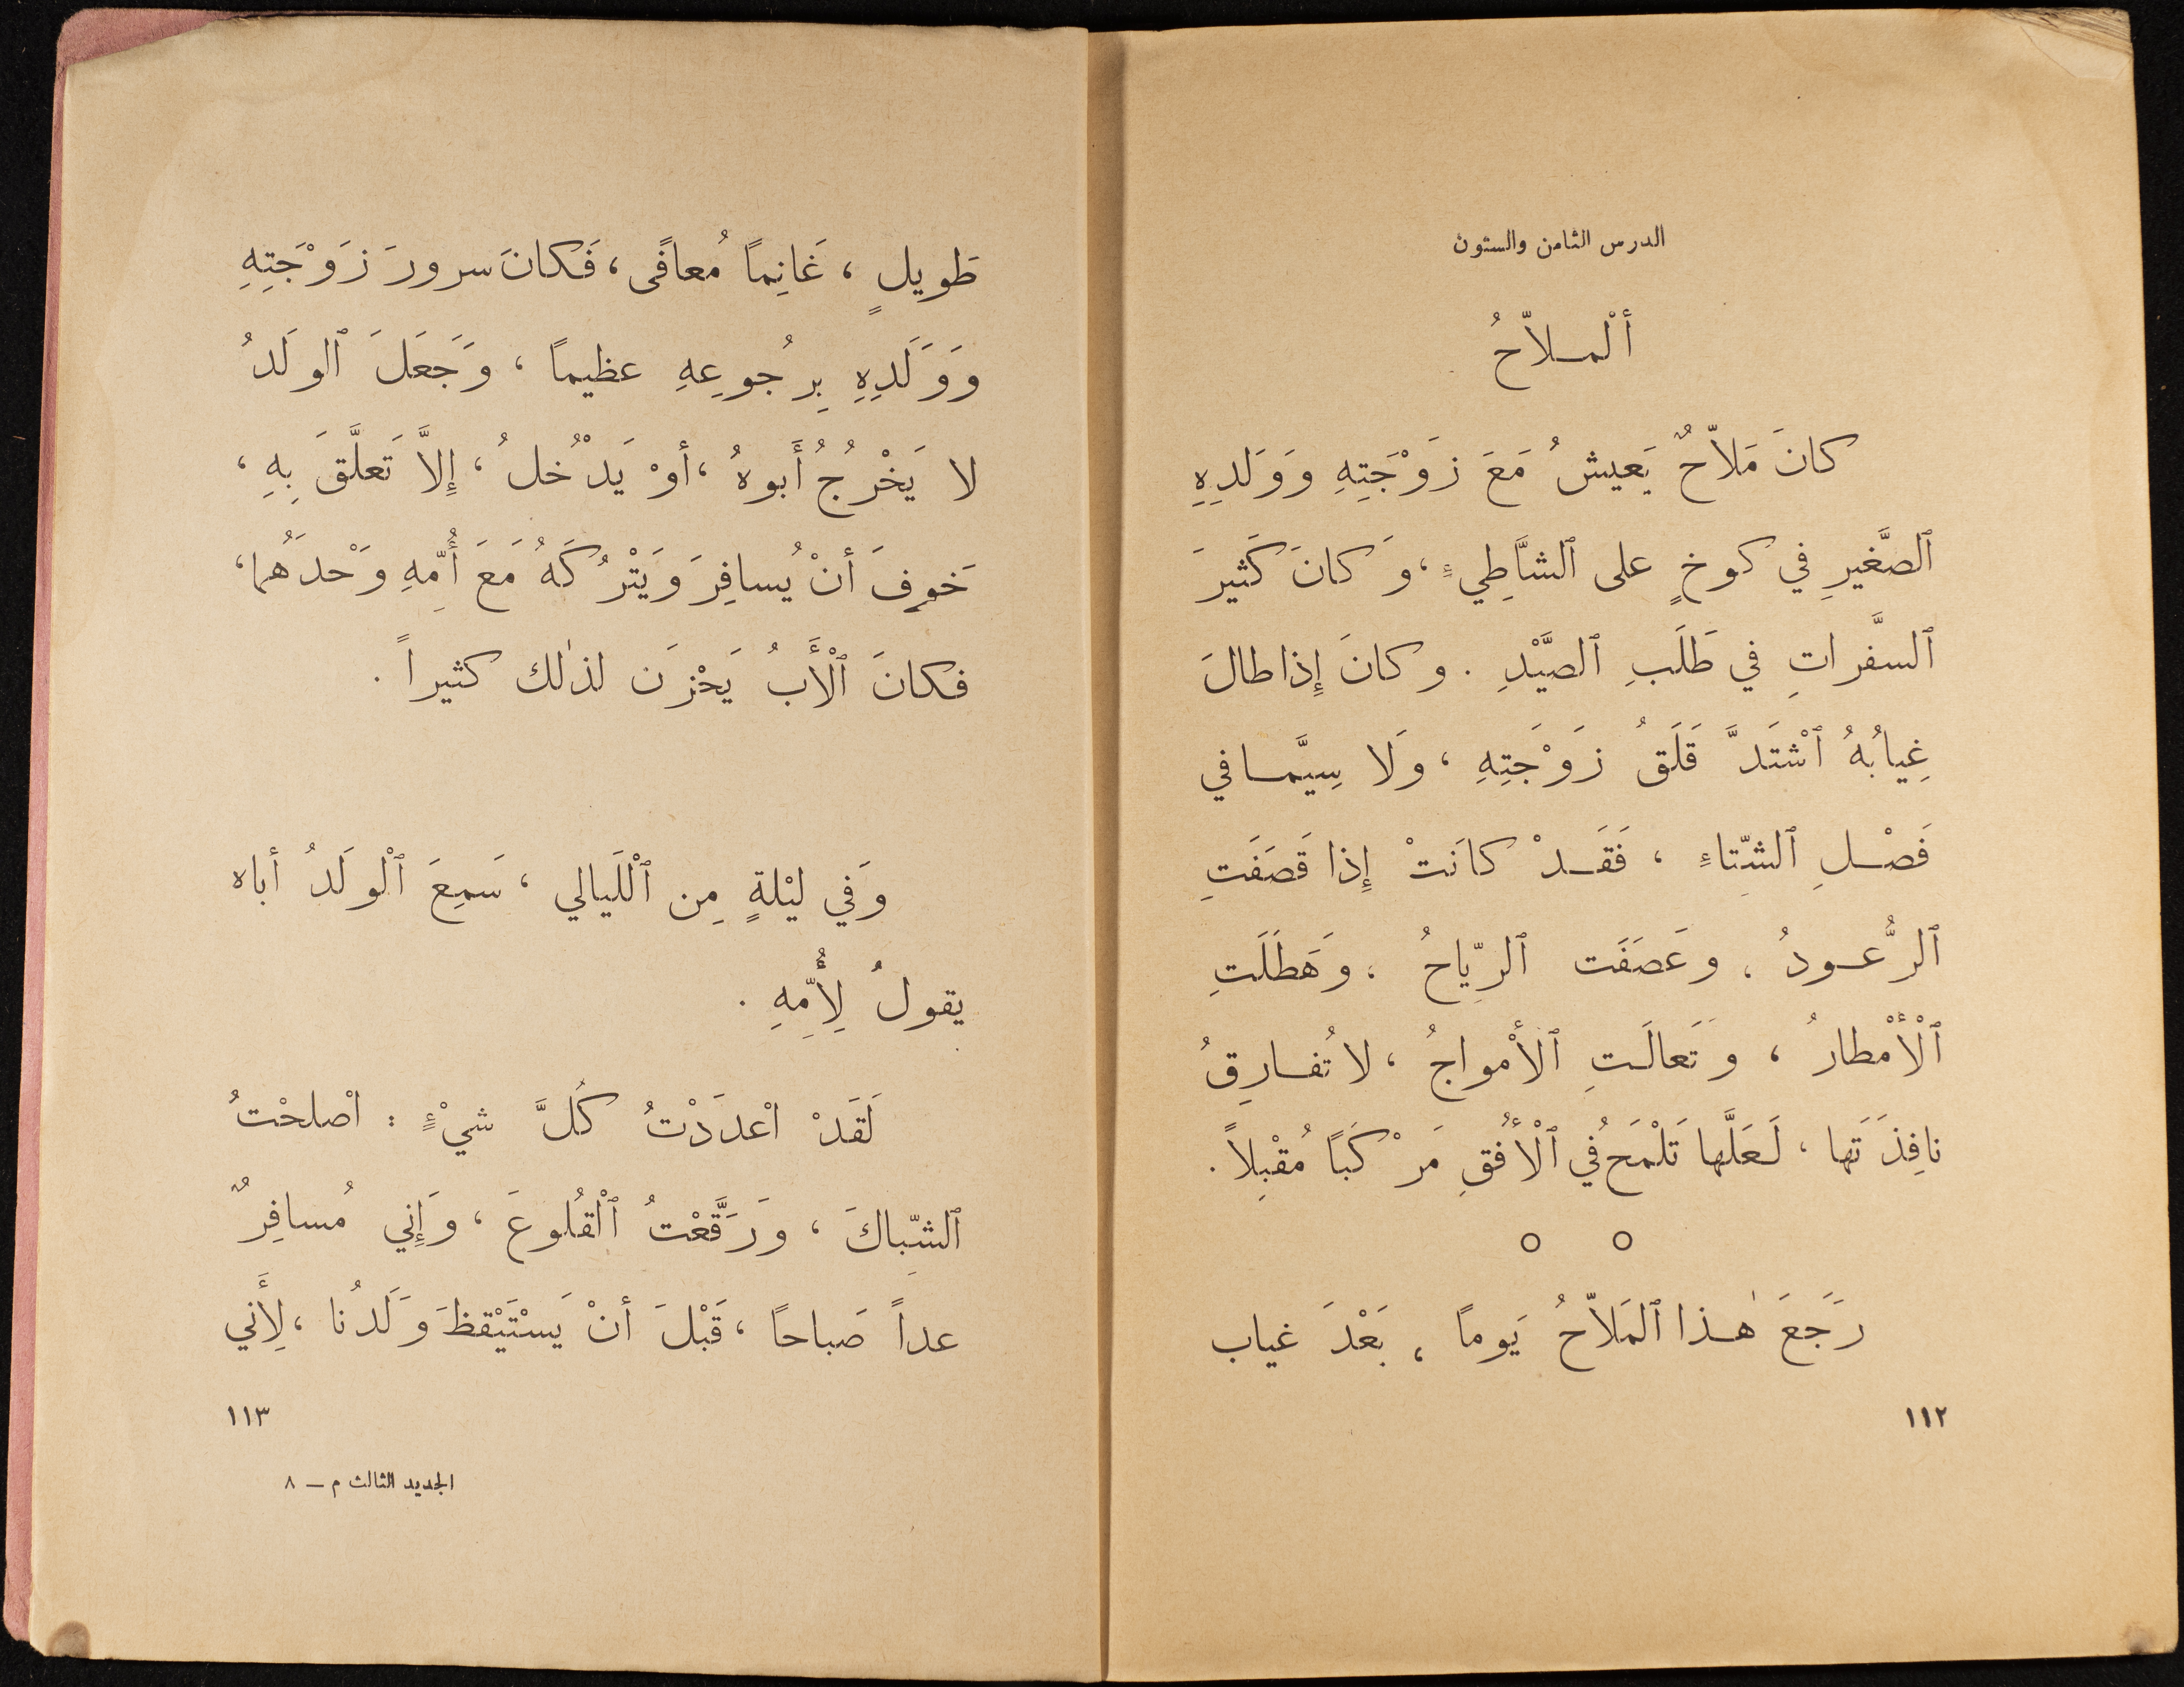 الدرس الثامن والستون
أَلْمـلاّحُ
كانَ مَلاّحٌ يَعيشُ مَعَ زَوْجَتِهِ وَوَلَدِهِ
ٱلصَّغيرِ في كوخٍ على ٱلشَّاطِيءِ ، وَكانَ كَثيرَ
ٱلسَّفَراتِ في طَلَبِ ٱلصَّيْدِ . وكانَ إِذا طالَ
غِيابُهُ ٱشْتَدَّ قَلَقُ زَوْجَتِهِ ، وَلا سِيَّمـا في
فَصْـلِ ٱلشِّتاءِ ، فَقَـدْ كانَتْ إِذا قَصَفَتِ
ٱلرُّعـودُ ، وعَصَفَت ٱلرِّياحُ ، وَهَطَلَتِ
ٱلْأَمْطارُ ، وَتَعالَـتِ ٱلأَمْواجُ ، لا تُفـارِقُ
نافِذَتَها ، لَعَلَّها تَلْمَحُ في ٱلْأُفُقِ مَرْكَبًا مُقْبِلاً .
○ ○
رَجَعَ هٰـذا ٱلمَلاّحُ يَومًا ، بَعْدَ غياب
١١٢
طَويلٍ ، غَانِمًا مُعافًى ، فَكانَ سرورَ زَوْجَتِهِ
وَوَلَدِهِ بِرُجوعِهِ عظيمًا ، وَجَعَلَ ٱلولَدُ
لا يَخْرُجُ أَبوهُ ، أَوْ يَدْخُلُ ، إِلاَّ تَعلَّقَ بِهِ ،
خَوفَ أَنْ يُسافِرَ وَيَتْرُكَهُ مَعَ أُمِّهِ وَحْدَهُما ،
فكانَ ٱلْأَبُ يَحْزَن لذٰلك كثيراً .
وَفي ليْلةٍ مِن ٱلْلَيالي ، سَمِعَ ٱلْولَدُ أباه
يقولُ لِأُمِّهِ .
لَقَدْ اعْدَدْتُ كُلَّ شيْءٍ : اصْلحْتُ
ٱلشِّباكَ ، وَرَقَّعْتُ ٱلْقُلوعَ ، وَإِني مُسافِرٌ
عداً صَباحًا ، قَبْلَ أَنْ يَسْتَيْقظَ وَلَدُنا ، لِأَني
١١٣
الجديد الثالث م ــ ٨